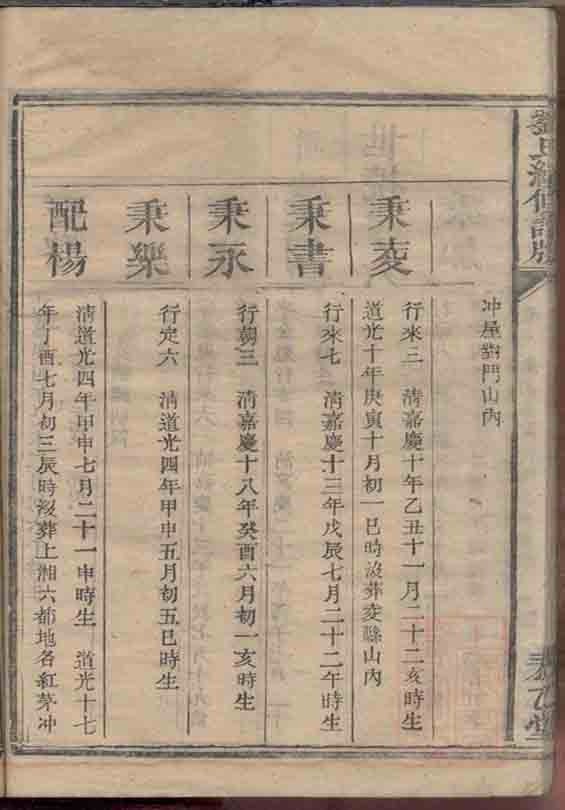 冲屋對門山內
秉
行來三 清嘉慶十年乙丑十一月二十二亥時生
道光十年庚寅十月初一巳時沒葬
秉書
行來七 清嘉慶十三年戊辰七月二十二午時生
秉永
行朝三 清嘉慶十八年癸酉六月初一亥時生
秉樂
行定六 清道光四年甲申五月初五巳時生
配楊
清道光四年甲申七月二十一申時生 道光十七
年丁酉七月初三辰時沒葬上湘六都地名紅茅冲